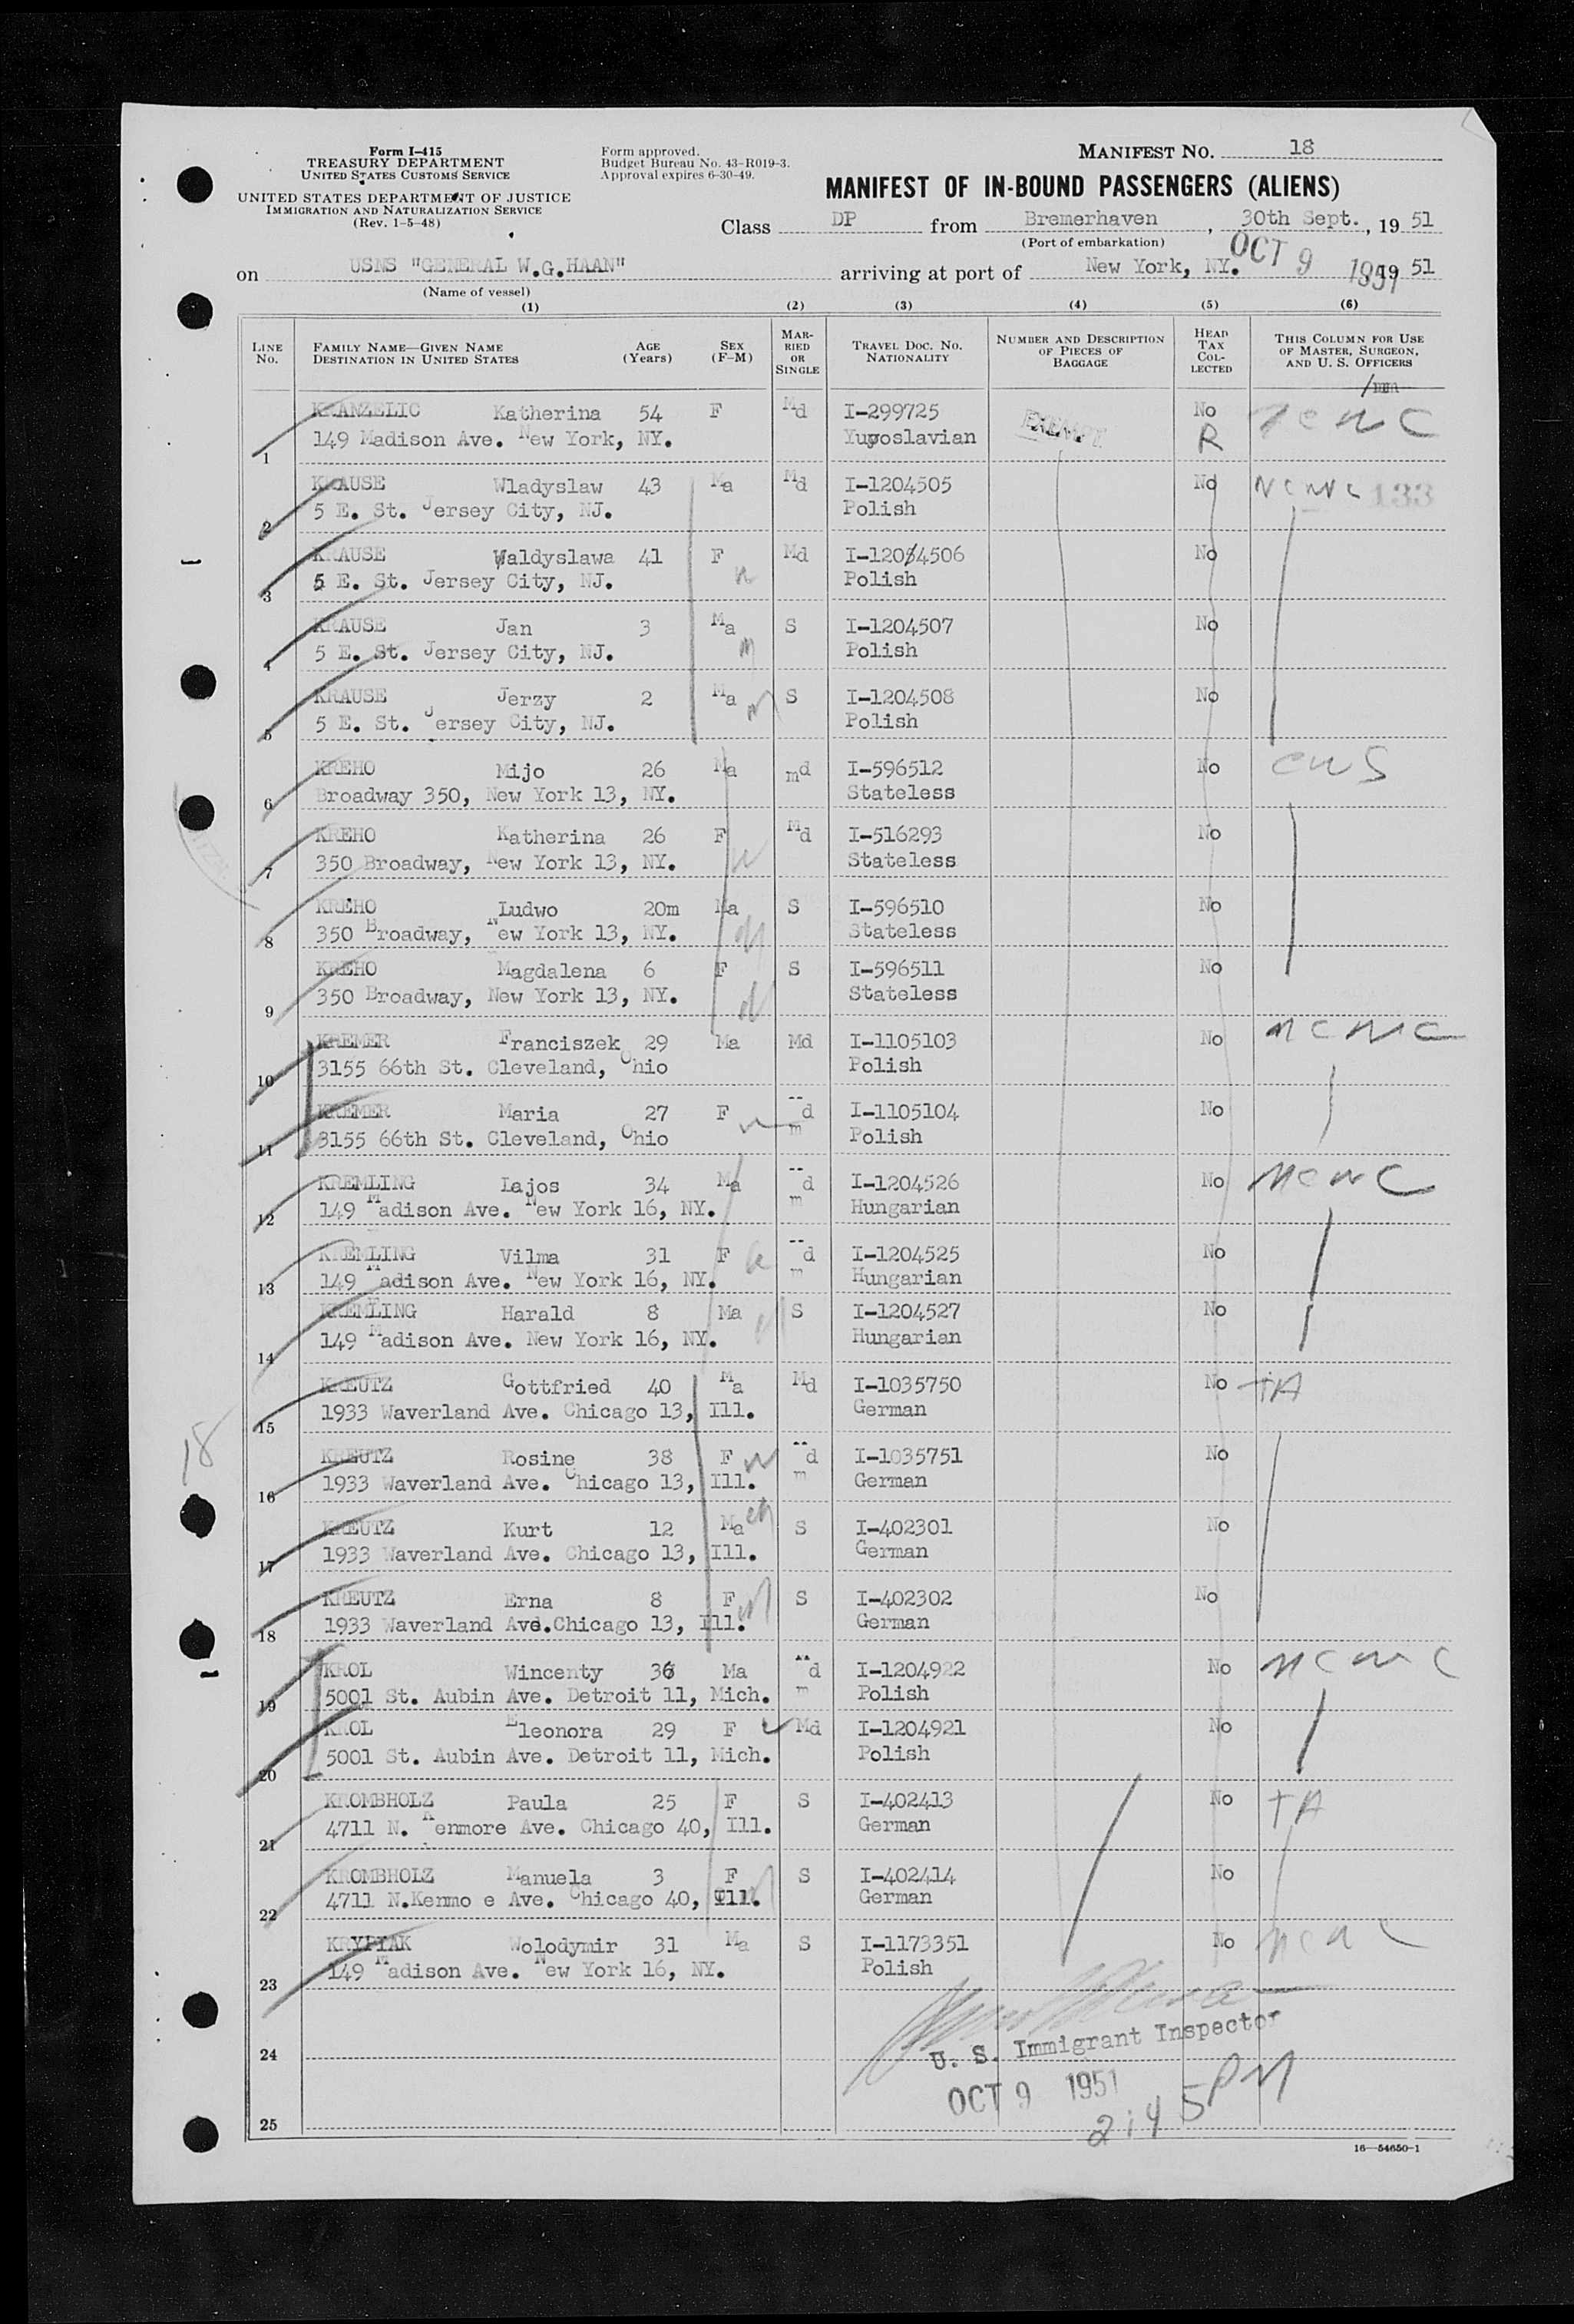 Form I-415
TREASURY DEPARTMENT
UNITED STATES CUSTOMS SERVICE
UNITED STATES DEPARTMENT OF JUSTICE
IMMIGRATION AND NATURALIZATION SERVICE
(Rev. 1-5-48)
Form approved.
Budget Bureau No. 43-R019-3.
Approval expires 6-30-49.
MANIFEST NO. 18
MANIFEST OF IN-BOUND PASSENGERS (ALIENS)
Class DP from Bremerhaven, 30th Sept., 19 51
(Port of embarkation)
on USNS "GENERAL W.G.HAAN" arriving at port of New York, NY. OCT 9 1951 19 51
(Name of vessel)
(1) (2) (3) (4) (5) (6)
LINE No. FAMILY NAME—GIVEN NAME DESTINATION IN UNITED STATES AGE (Years) SEX (F-M) MARRIED OR SINGLE TRAVEL DOC. NO. NATIONALITY NUMBER AND DESCRIPTION OF PIECES OF BAGGAGE HEAD TAX COLLECTED THIS COLUMN FOR USE OF MASTER, SURGEON, AND U. S. OFFICERS
KRANZELIC Katherina 54 F Md I-299725 EXEMPT No NCWC
1 149 Madison Ave. New York, NY. Yugoslavian R
KRAUSE Wladyslaw 43 Ma Md I-1204505 No NCWC 133
2 5 E. St. Jersey City, NJ. Polish
KRAUSE Waldyslawa 41 F Md I-1204506 No
3 5 E. St. Jersey City, NJ. Polish
KRAUSE Jan 3 Ma S I-1204507 No
4 5 E. St. Jersey City, NJ. Polish
KRAUSE Jerzy 2 Ma S I-1204508 No
5 5 E. St. Jersey City, NJ. Polish
KREHO Mijo 26 Ma md I-596512 No CWS
6 Broadway 350, New York 13, NY. Stateless
KREHO Katherina 26 F Md I-516293 No
7 350 Broadway, New York 13, NY. Stateless
KREHO Ludwo 20m Ma S I-596510 No
8 350 Broadway, New York 13, NY. Stateless
KREHO Magdalena 6 F S I-596511 No
9 350 Broadway, New York 13, NY. Stateless
KREMER Franciszek 29 Ma Md I-1105103 No NCWC
10 3155 66th St. Cleveland, Ohio Polish
KREMER Maria 27 F md I-1105104 No
11 3155 66th St. Cleveland, Ohio Polish
KREMLING Lajos 34 Ma md I-1204526 No NCWC
12 149 Madison Ave. New York 16, NY. Hungarian
KREMLING Vilma 31 F md I-1204525 No
13 149 Madison Ave. New York 16, NY. Hungarian
KREMLING Harald 8 Ma S I-1204527 No
14 149 Madison Ave. New York 16, NY. Hungarian
KREUTZ Gottfried 40 Ma Md I-1035750 No TA
15 1933 Waverland Ave. Chicago 13, Ill. German
KREUTZ Rosine 38 F md I-1035751 No
16 1933 Waverland Ave. Chicago 13, Ill. German
KREUTZ Kurt 12 Ma S I-402301 No
17 1933 Waverland Ave. Chicago 13, Ill. German
KREUTZ Erna 8 F S I-402302 No
18 1933 Waverland Ave.Chicago 13, Ill. German
KROL Wincenty 36 Ma md I-1204922 No NCWC
19 5001 St. Aubin Ave. Detroit 11, Mich. Polish
KROL Eleonora 29 F Md I-1204921 No
20 5001 St. Aubin Ave. Detroit 11, Mich. Polish
KROMBHOLZ Paula 25 F S I-402413 No TA
21 4711 N. Kenmore Ave. Chicago 40, Ill. German
KROMBHOLZ Manuela 3 F S I-402414 No
22 4711 N.Kenmo e Ave. Chicago 40, Ill. German
KRYPIAK Wolodymir 31 Ma S I-1173351 No NCWC
23 149 Madison Ave. New York 16, NY. Polish
24
U. S. Immigrant Inspector
OCT 9 1951
2:45 PM
25
16—54650-1
18